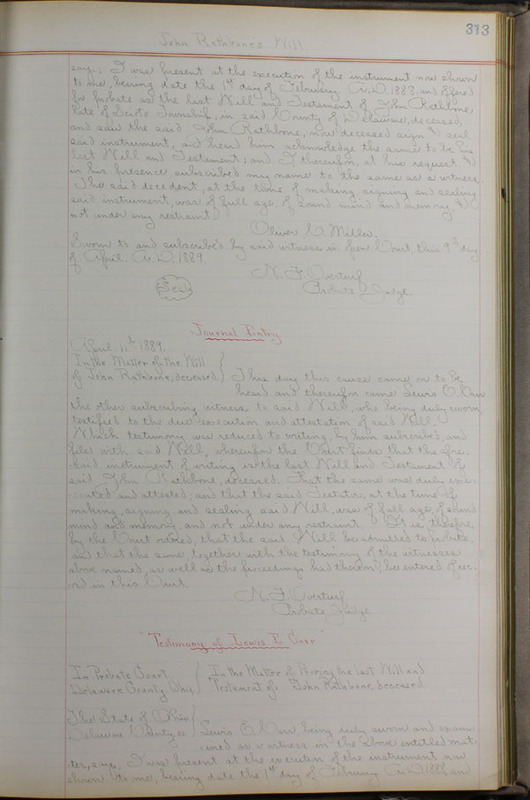 313
John Rathbone's Will
says; I was present at the execution of the instrument now shown
to me, bearing date the 1st day of February A.D. 1883, and offered
for probate as the last Will and Testament of John Rathbone,
late of Scioto Township, in said County of Delaware, deceased,
and saw the said John Rathbone, now deceased sign & seal
said instrument, and heard him acknowledge the same to be his
last Will and Testament; and I thereupon, at his request, &
in his presence subscribed my name to the same as a witness
The said decedent, at the time of making, signing and sealing
said instrument, was of full age, of sound mind and memory, &
not under any restraint.
Oliver A. Miller.
Sworn to and subscribed by said witness in open Court, this 9th day
of April. A.D. 1889.
N. F. Overturf
Seal
Probate Judge.
Journal Entry
April 11th 1889.
In the Matter of the Will
of John Rathbone, deceased
This day this cause came on to be
heard and thereupon came Lewis E.
the other subscribing witness to said Will, who being duly sworn,
testified to the due execution and attestation of said Will.
Which testimony was reduced to writing, by him subscribed and
filed with said Will, whereupon the Court finds that the afore-
said instrument of writing is the last Will and Testament of
said John Rathbone, deceased. That the same was duly exe-
cuted and attested; and that the said Testator, at the time of
making, signing and sealing said Will, was of full age, of sound
mind and memory, and not under any restraint. It is therefore,
by the Court ordered, that the said Will be admitted to probate,
and that the same, together with the testimony of the witnesses
above named, as well as the proceedings had thereon, be entered of rec-
ord in this Court.
N. F. Overturf
Probate Judge
"Testimony of Lewis E.
In Probate Court,
Delaware County, Ohio,
In the Matter of Proving the last Will and
Testament of John Rathbone, deceased
The State of Ohio
Delaware County ss
Lewis E. being duly sworn and exam-
ined as a witness in the above entitled mat-
ter, says, I was present at the execution of the instrument now
shown to me, bearing date the 1st day of February A.D. 1883, an